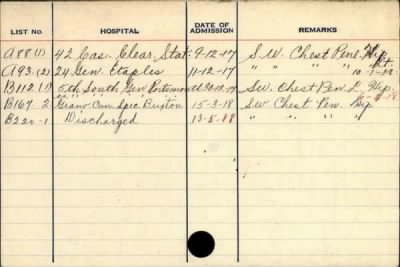 LIST NO. HOSPITAL DATE OF ADMISSION REMARKS
A88(1) 42 Cas. Clear. Stat. 9-12-17 S.W. Chest Pene. Hip
A93.(2) 24 Gen. Etaples 11-12-17 " " " " Rt.
B112(1) 5th South. Gen. Portsmouth 30-12-17 SW. Chest Pen. L. Hip.
B167-2 Gran. Can. Spec. Buxton 15-3-18 SW Chest Pen. Hip
B220-1 Discharged 13-5-18 " " " "